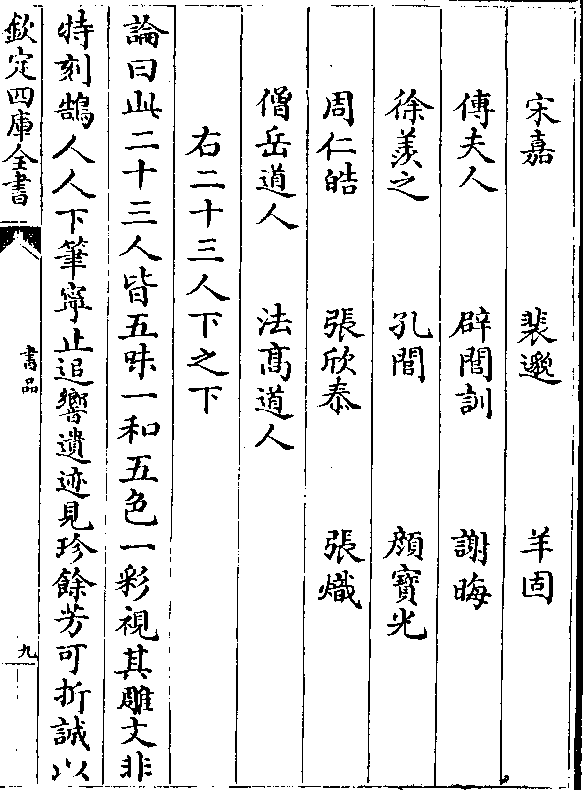 宋嘉　裴邈　羊固
傅夫人　辟閭訓　謝晦
徐羨之　孔閭　顏寶光
周仁皓　張欣泰　張熾
僧岳道人　法髙道人
右二十三人下之下
論曰此二十三人皆五味一和五色一彩視其雕文非
特刻鵠人人下筆寧止追響遺迹見珍餘芳可折誠以
欽定四庫全書
書品
九